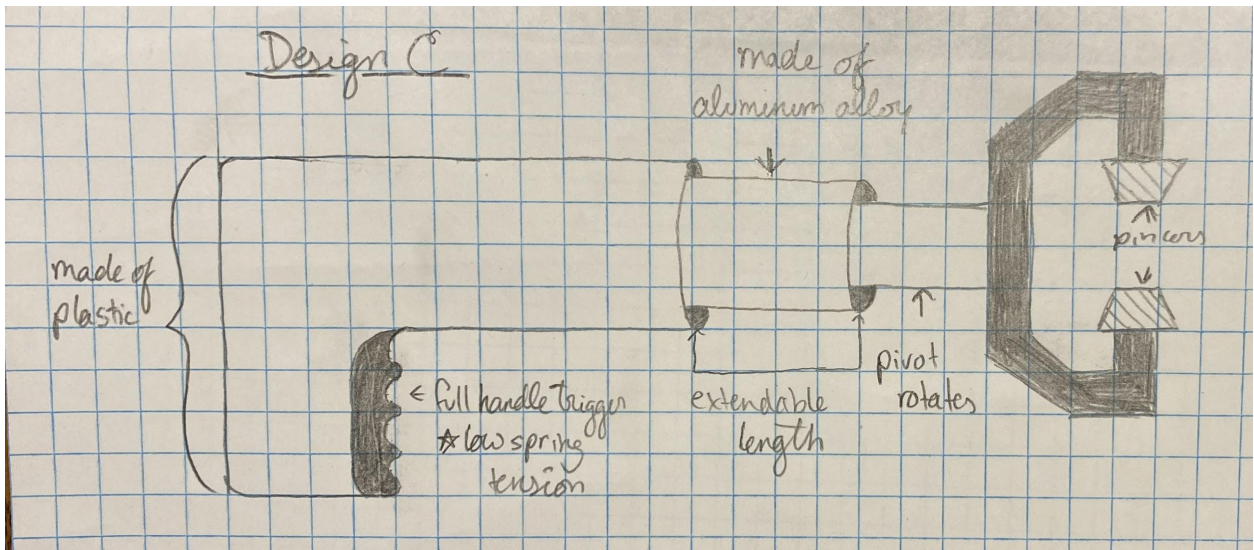 Design C
made of
aluminum alloy
made of
plastic
pincers
← full handle trigger
☆ low spring
tension
extendable
length
pivot
rotates